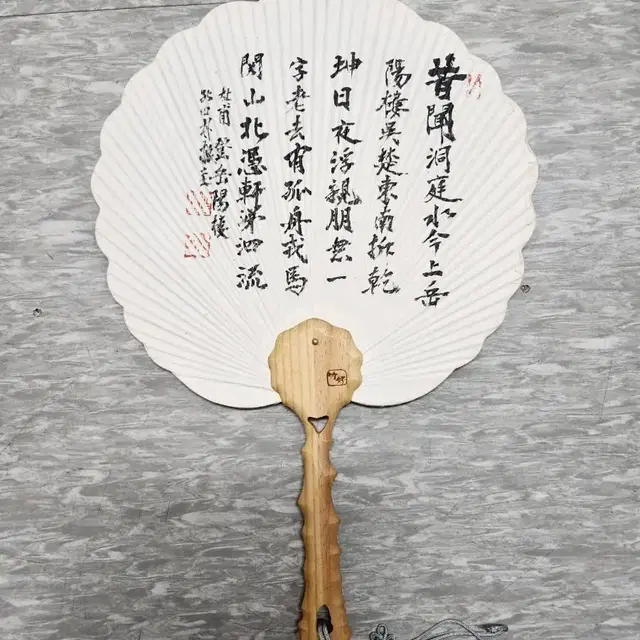 昔聞洞庭水今上岳
陽樓吳楚東南坼乾
坤日夜浮親朋無一
字老去有孤舟戎馬
関山北憑軒涕泗流
杜甫登岳陽樓